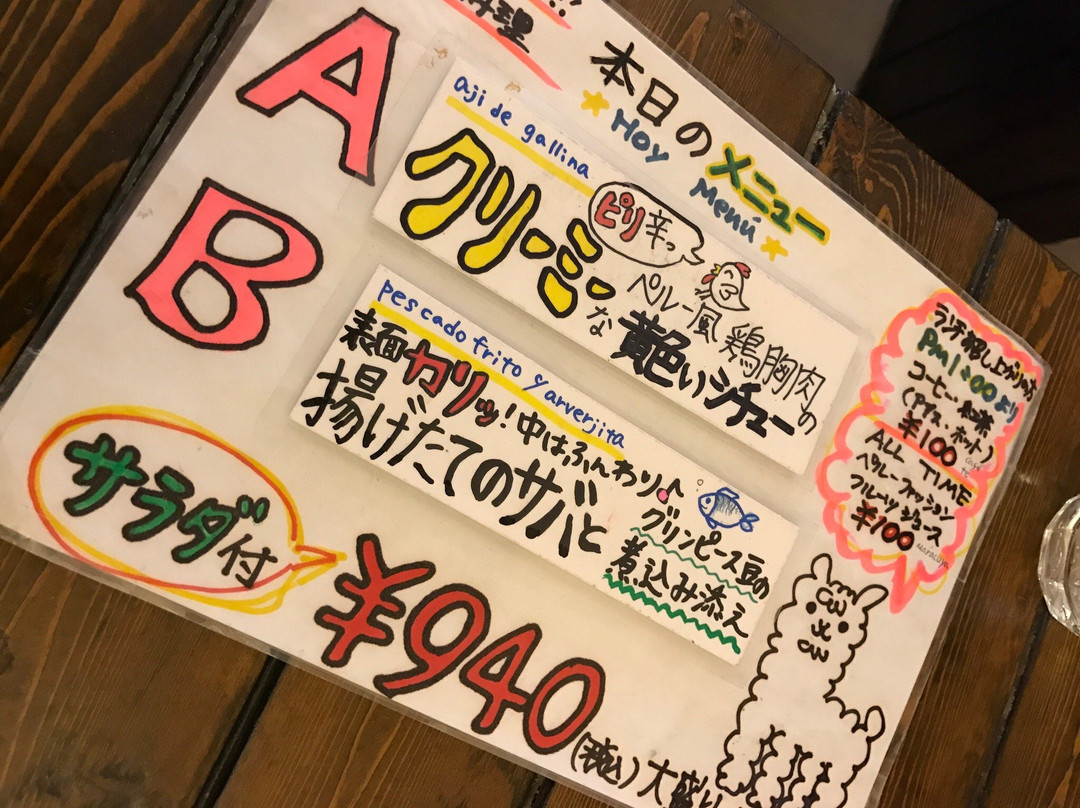 料理
本日のメニュー
Hoy Menú
A
aji de gallina
ピリ辛っ
クリーミーな
ペルー風鶏胸肉の
黄色いシチュー
B
pescado frito y arverjita
表面カリッ!中はふんわり♪
揚げたてのサバと
グリンピース豆の
煮込み添え
サラダ付
¥940
(税込)大盛り
PM1:00より
コーヒー、紅茶
(アイス、ホット)
¥100
ALL TIME
ペルーパッション
フルーツジュース
¥100
maracuya